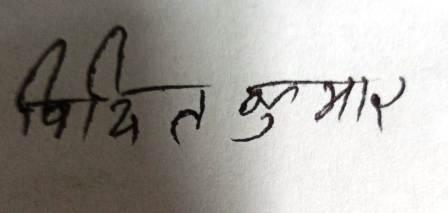 विदित कुमार